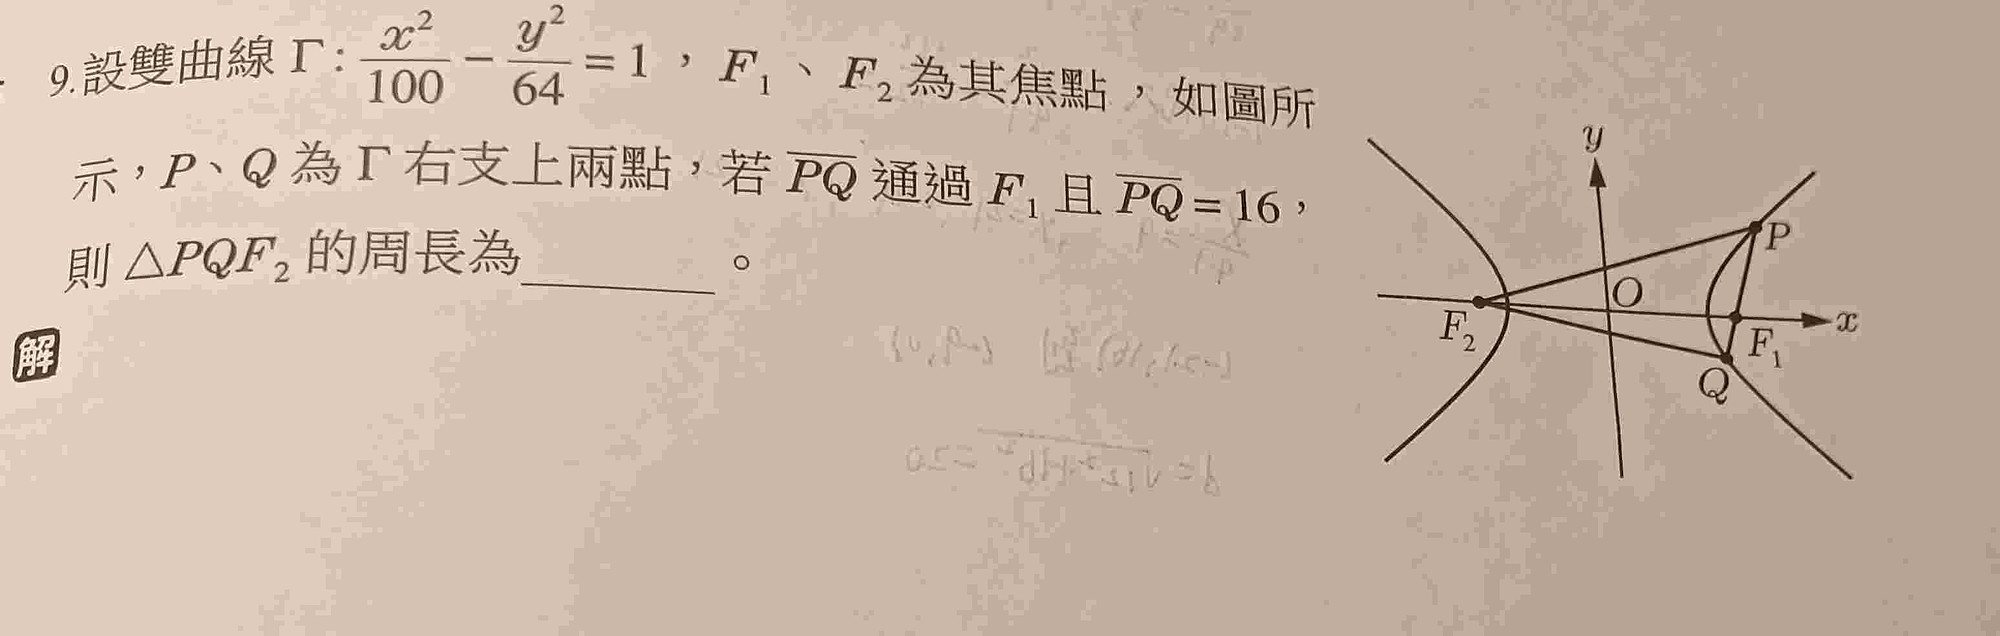 9.設雙曲線 Γ: x²/100 − y²/64 = 1，F₁、F₂ 為其焦點，如圖所
示，P、Q 為 Γ 右支上兩點，若 PQ 通過 F₁ 且 PQ = 16，
則 △PQF₂ 的周長為______。
解
y
P
O
x
F₂
F₁
Q